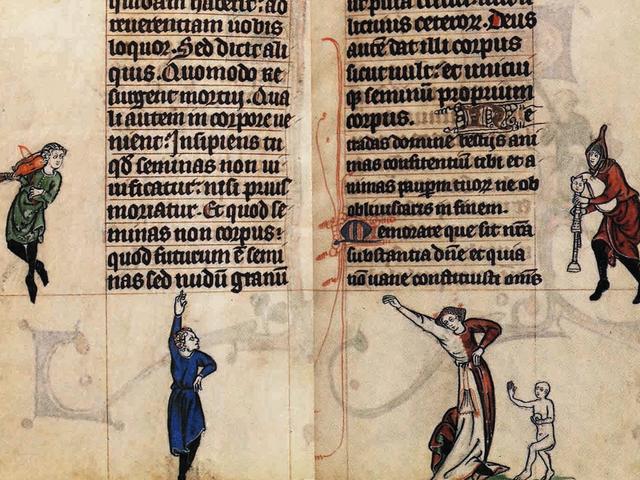 quidam habent: ad
reuerentiam uobis
loquor. Sed dicit ali
quis. Quomodo re
surgent mortui. Qua
li autem in corpore ue
nient: Insipiens tu
qđ seminas non ui
uificatur: nisi prius
moriatur. Et quod se
minas non corpus:
quod futurum ē semi
nas sed nudū granū
licuius ceteroꝝ. Deus
autē dat illi corpus
sicut uult: et unicui
qꝫ seminū proprium
corpus. Ne
tradas domine bestijs ani
mas confitentiū tibi et a
nimas paupm tuoꝝ ne ob
obliuiscaris in finem.
Memorare que sit nrā
substantia dñe et quia
nō uane constituisti om̄s